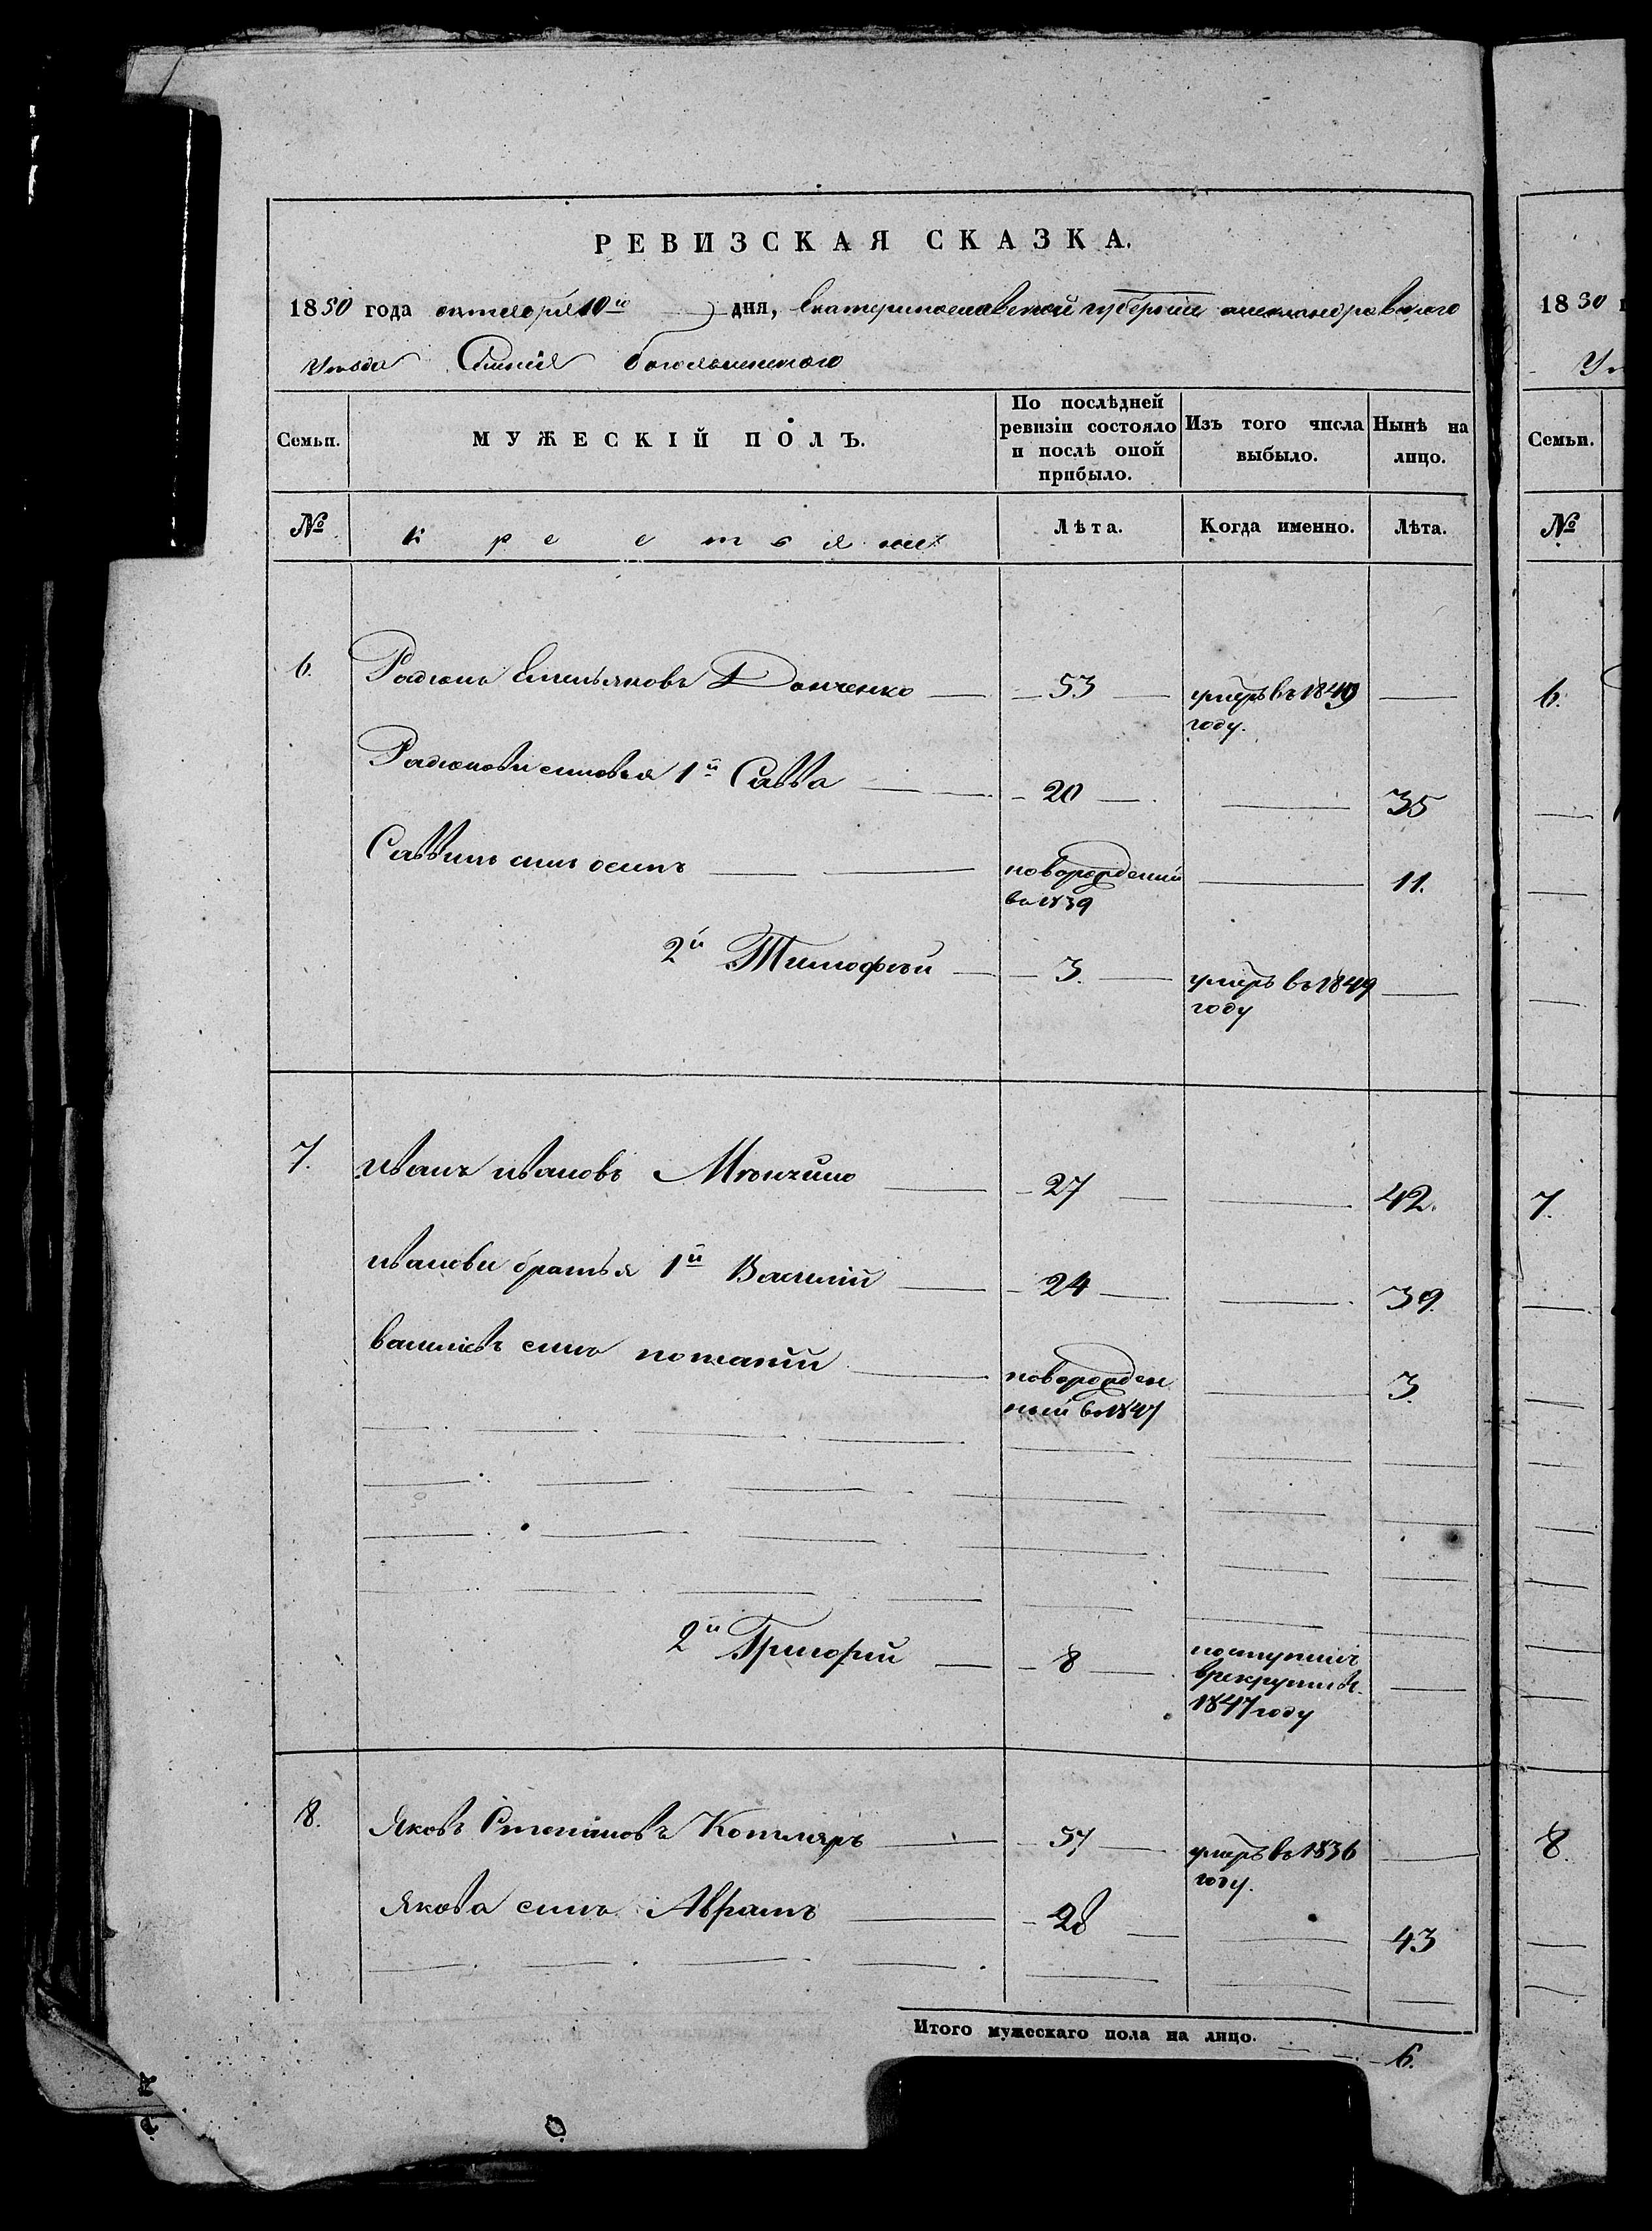 РЕВИЗСКАЯ СКАЗКА.
1850 года октября 10го дня, Екатеринославской губернии александровского
Уезда Боголюбенского
Семьи. МУЖЕСКІЙ ПОЛЪ. По послѣдней ревизіи состояло и послѣ оной прибыло. Изъ того числа выбыло. Нынѣ на лицо.
№ крестьянех Лѣта. Когда именно. Лѣта.
6. Радіонъ Емельяновъ Данченко — 53 — умеръ въ 1849 году. —
Радіонови синовья 1й Савва — 20 — — 35
Саввинъ синъ осипъ — новорожденій въ 1839 — 11.
2й Тимофѣй — 3. — умеръ въ 1849 году —
7. иванъ ивановъ — 27 — — 42.
иванови братья 1й Василій — 24 — — 39.
василіевъ синъ — новорожденный въ 1847 — 3.
2й Григорій — 8 — поступилъ врекруты 1847 году —
8. Яковъ Степановъ Котляръ — 57 — умеръ въ 1836 году. —
Якова синъ Аврамъ — 28 — — 43
Итого мужескаго пола на лицо. 6.
1850
№
Семьи.
6.
7.
8.